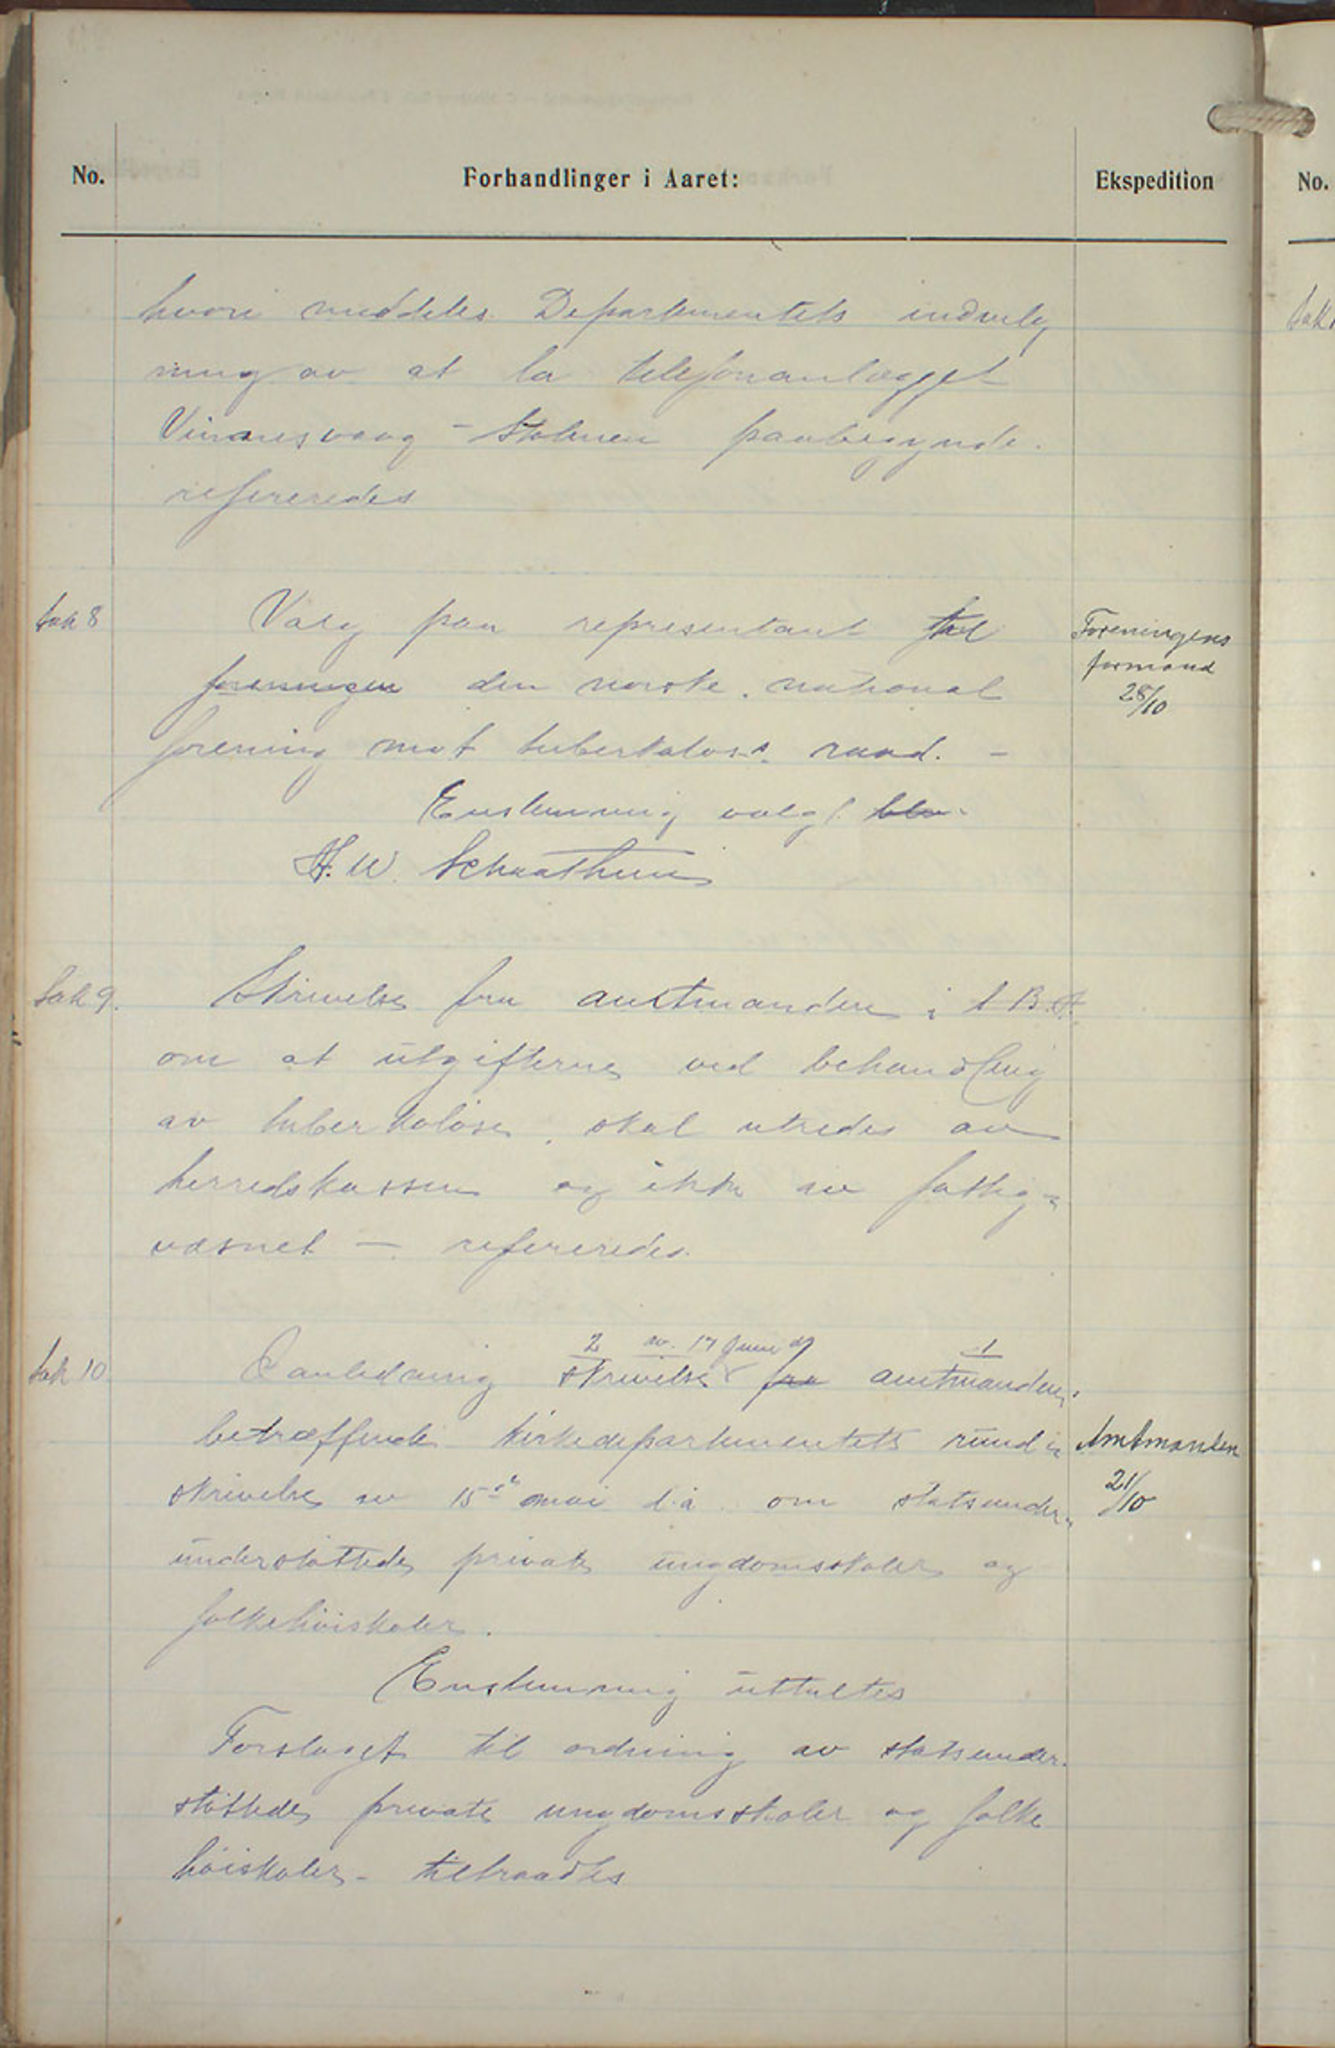 No. Forhandlinger i Aaret: Ekspedition No.
hvori meddeles Departementets indvilg
ning av at la telefonanlægget
Vinanesvaag - Stolmen paabegynde.
refereredes
Sak 8 Valg paa representant til
foreningen den norske national
forening mot tuberkulose raad. -
Enstemmig valgt blev
H. W. Schaathun
Foreningens
formand
28/10
Sak 9. Skrivelse fra amtmanden i S. B. A.
om at utgifterne ved behandling
av tuberkuløse, skal utredes av
herredskassen og ikke av fattig-
væsnet - refereredes.
2 av 17 juni d 1
Sak 10 I anledning skrivelse fra amtmanden
betræffende kirkedepartementets rund-
skrivelse av 15de mai d.a. om statsunder-
understøttede private ungdomsskoler og
folkehøiskoler.
Amtmanden
21/10
Enstemmig uttaltes
Forslaget til ordning av statsunder-
støttede private ungdomsskoler og folke
høiskoler - tiltraadtes
Sak